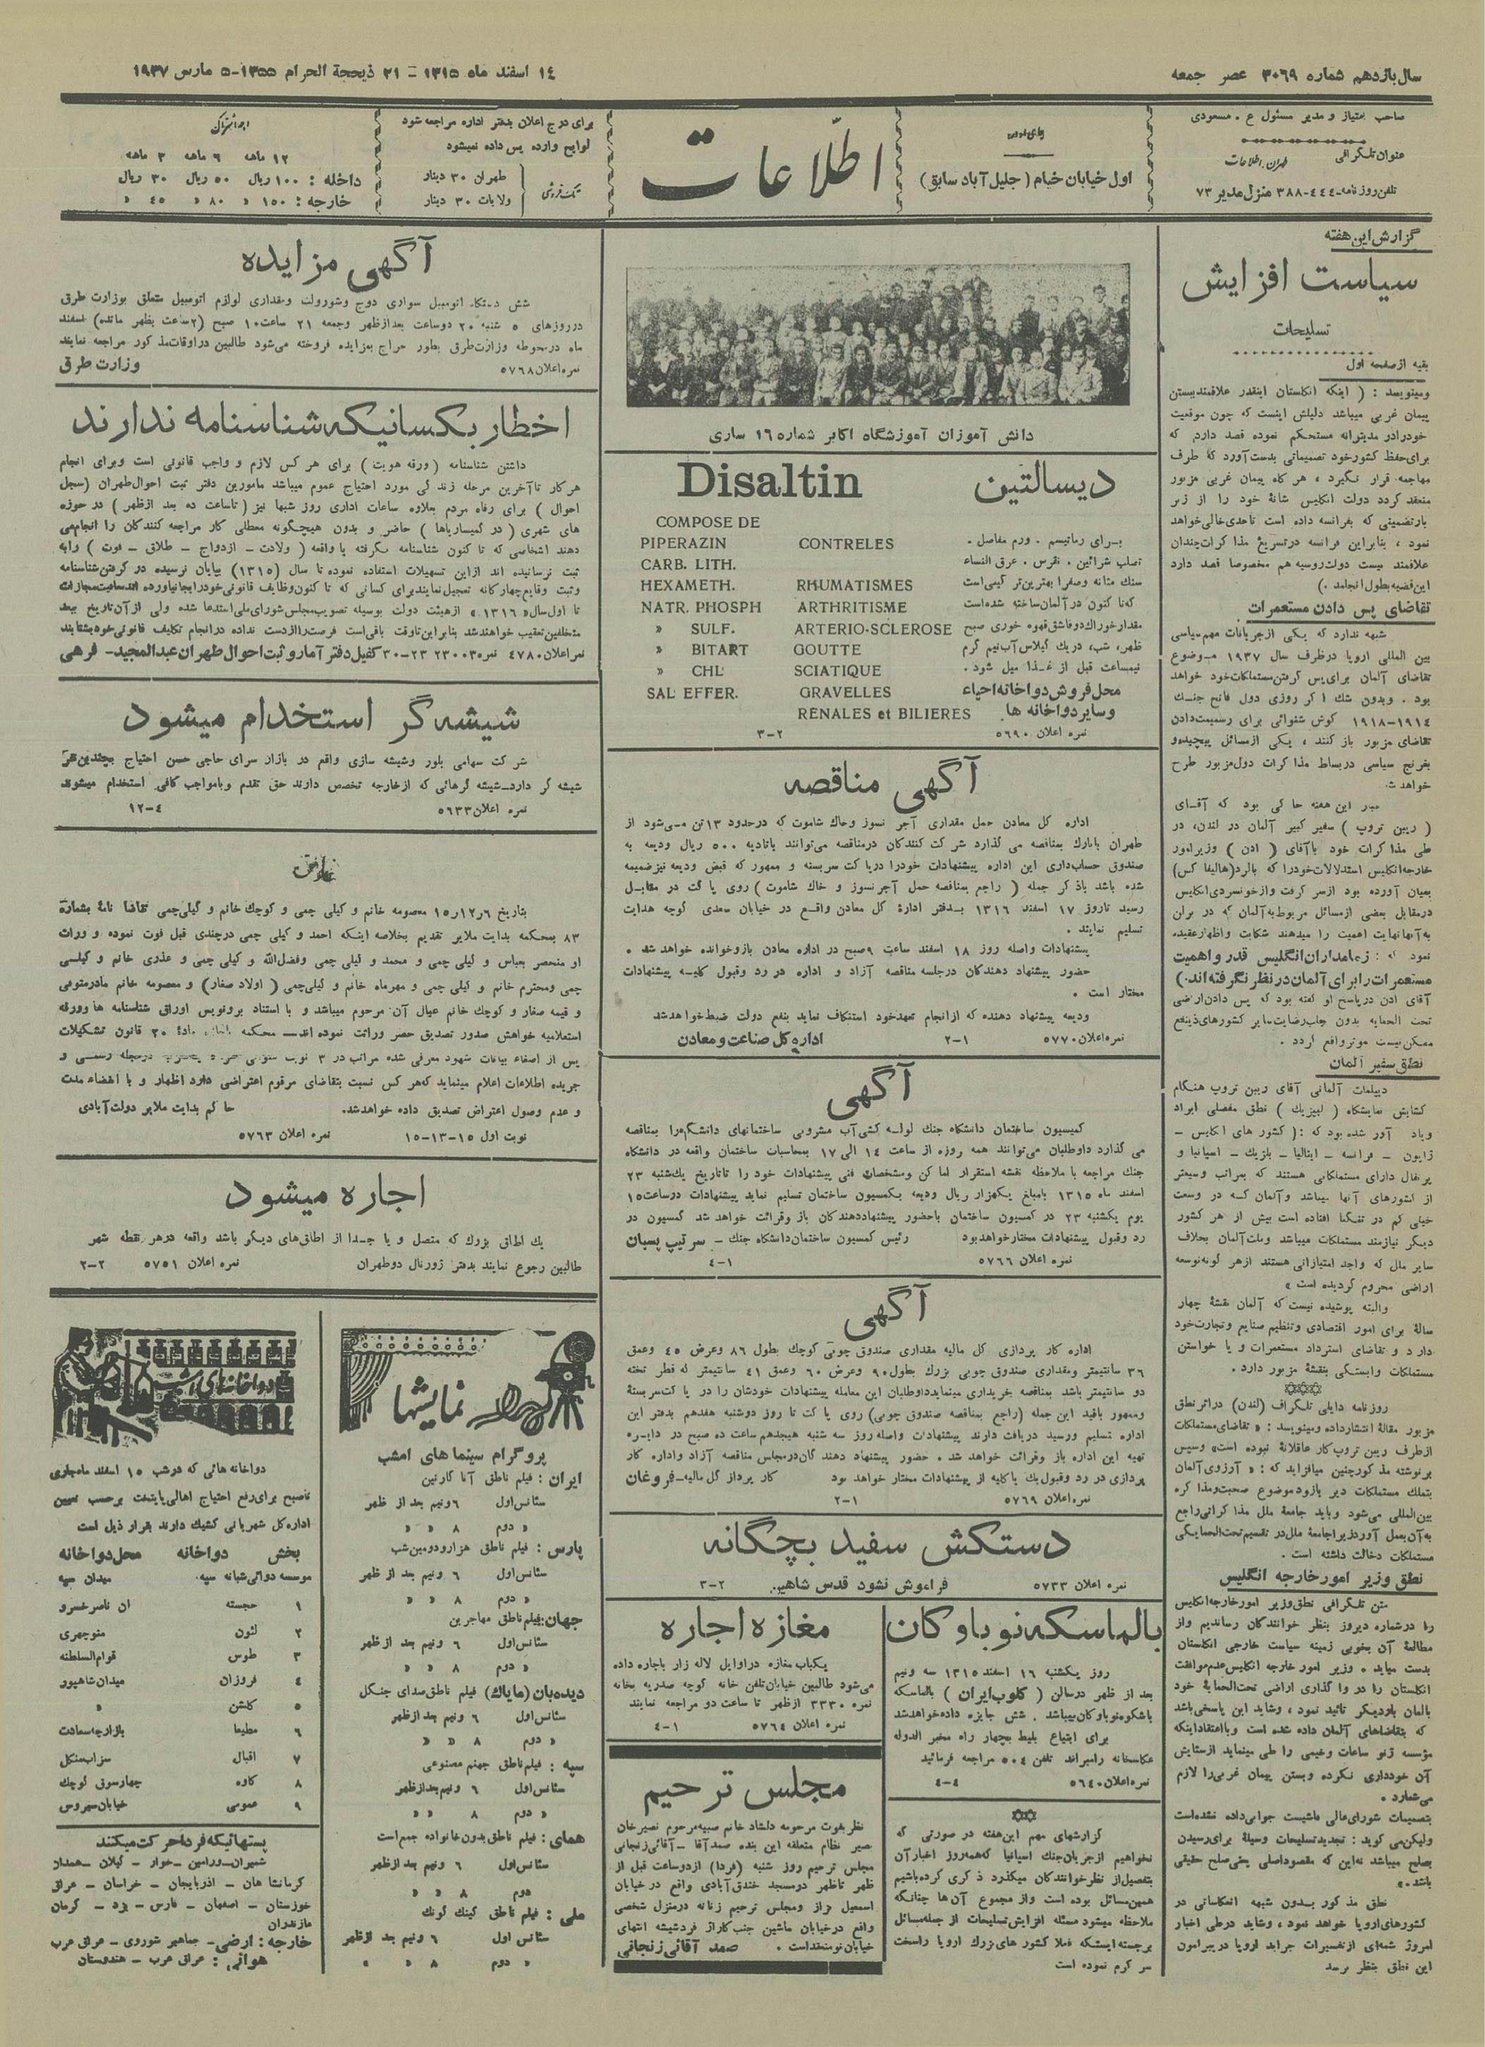 سال یازدهم شماره ۳۰۶۹ عصر جمعه
۱۴ اسفند ماه ۱۳۱۵ - ۲۱ ذیحجة الحرام ۱۳۵۵ - ۵ مارس ۱۹۳۷
صاحب امتیاز و مدیر مسئول ع . مسعودی
عنوان تلگرافی طهران اطلاعات
تلفن روزنامه ۴۴۴-۳۸۸ منزل مدیر ۷۳
اول خیابان خیام ( جلیل آباد سابق )
اطلاعات
برای درج اعلان بدفتر اداره مراجعه شود
لوایح وارده پس داده نمیشود
تک فروشی
طهران ۳۰ دینار
ولایات ۳۰ دینار
وجه اشتراک
۱۲ ماهه ۶ ماهه ۳ ماهه
داخله : ۱۰۰ ریال ۵۰ ریال ۳۰ ریال
خارجه : ۱۵۰ » ۸۰ » ۴۵ »
گزارش این هفته
سیاست افزایش
تسلیحات
بقیه از صفحه اول
ومینویسد : ( اینکه انگلستان اینقدر علاقمند ببستن
پیمان غربی میباشد دلیلش اینست که چون موقعیت
خودرادر مدیترانه مستحکم نموده قصد دارد که
برای حفظ کشورخود تصمیماتی بدست آورد که طرف
مهاجمه قرار نگیرد ، هر گاه پیمان غربی مزبور
منعقد گردد دولت انگلیس شانهٔ خود را از زیر
بارتضمینی که بفرانسه داده است تاحدی خالی خواهد
نمود ، بنابراین فرانسه درتسریع مذا کرات چندان
علاقمند نیست دولت روسیه هم مخصوصا قصد دارد
این قضیه بطول انجامد .)
تقاضای پس دادن مستعمرات
شبهه ندارد که یکی ازجریانات مهم سیاسی
بین المللی اروپا درظرف سال ۱۹۳۷ موضوع
تقاضای آلمان برای پس گرفتن مستملکات خود خواهد
بود . وبدون شك اگر روزی دول فاتح جنـك
۱۹۱۴-۱۹۱۸ گوش شنوائی برای رسمیت دادن
تقاضای مزبور باز کنند ، یکی ازمسائل پیچیده و
بغرنج سیاسی دربساط مذا کرات دول مزبور طرح
خواهد شد
( ریبن تروپ ) سفیر کبیر آلمان در لندن، در
طی مذا کرات خود باآقای ( ادن ) وزیرامور
خارجه انگلیس استدلالات خودرا که بالرد(هالیفا کس)
بمیان آورده بود ازسر گرفت وازخونسردی انگلیس
درمقابل بعضی ازمسائل مربوط به آلمان که در برلن
به آنها نهایت اهمیت را میدهند شکایت واظهارعقیده
نمود که : زمامداران انگلیس قدر و اهمیت
مستعمرات را برای آلمان درنظر نگرفته اند.)
آقای ادن درپاسخ او گفته بود که پس دادن اراضی
تحت الحمایه بدون جلب رضایت سایر کشورهای ذینفع
ممکن نیست موثر واقع گردد .
نطق سفیر آلمان
دیپلمات آلمانی آقای ریبن تروپ هنگام
گشایش نمایشگاه ( لیپزیك ) نطق مفصلی ایراد
ویاد آور شده بود که :( کشور های انگلیس -
ژاپون - فرانسه - ایتالیا - بلژیك - اسپانیا و
پرتقال دارای مستملکاتی هستند که بمراتب وسیعتر
از کشورهای آنها میباشد وآلمان کـه در وسعت
خیلی کم در تنگنا افتاده است بیش از هر کشور
دیگر نیازمند مستملکات میباشد وملت آلمان بخلاف
سایر ملل که واجد امتیازاتی هستند ازهر گونه توسعه
اراضی محروم گردیده است »
والبته پوشیده نیست که آلمان نقشهٔ چهار
سالهٔ برای امور اقتصادی وتنظیم صنایع وتجارت خود
دارد و تقاضای استرداد مستعمرات و یا خواستن
مستملکات وابستگی بنقشهٔ مزبور دارد .
روزنامه دایلی تلگراف (لندن) دراثرنطق
مزبور مقالهٔ انتشارداده ومینویسد : « تقاضای مستملکات
ازطرف ریبن تروپ کار عاقلانهٔ نبوده است» وسپس
برنوشته مذ کورچنین میافزاید که : « آرزوی آلمان
بین المللی می شود وباید جامعهٔ ملل مذا کراتی راجع
به آن بعمل آورد زیراجامعهٔ ملل در تقسیم تحت الحمایگی
مستملکات دخالت داشته است .
نطق وزیر امورخارجه انگلیس
متن تلگرافی نطق وزیر امورخارجه انگلیس
را درشماره دیروز بنظر خوانندگان رساندیم واز
مطالعهٔ آن بخوبی زمینه سیاست خارجی انگلستان
بدست میاید . وزیر امور خارجه انگلیس عدم موافقت
انگلستان را در وا گذاری اراضی تحت الحمایهٔ خود
بآلمان باردیگر تائید نمود ، وشاید این پاسخی باشد
که بتقاضاهای آلمان داده شده است وبااعتقاد اینکه
مؤسسه ژنو ساعات وخیمی را طی مینماید ازستایش
آن خودداری نکرده وبستن پیمان غربی را لازم
می شمارد .
بتصمیمات شورای عالی فاشیست جوابی داده نشده است
ولیکن می گوید : تجدید تسلیحات وسیلهٔ برای رسیدن
بصلح میباشد نه این که مقصوداصلی یعنی صلح حقیقی
باشد.»
نطق مذ کور بـدون شبهه انعکاساتی در
کشورهای اروپا خواهد نمود ، وشاید درطی اخبار
امروز شمه‌ای ازتفسیرات جراید اروپا در پیرامون
این نطق بنظر برسد
دانش آموزان آموزشگاه اکابر شماره ۱۶ ساری
دیسالتین Disaltin
COMPOSE DE
PIPERAZIN CONTRELES
CARB. LITH.
HEXAMETH. RHUMATISMES
NATR. PHOSPH ARTHRITISME
» SULF. ARTERIO-SCLEROSE
» BITART GOUTTE
» CHL SCIATIQUE
SAL EFFER. GRAVELLES
RENALES et BILIERES
بـرای رماتیسم . ورم مفاصل .
تصلب شرائین . نقرس . عرق النساء
سنك مثانه وصفرا بهترین تر کیبی است
که تا کنون در آلمان ساخته شده است
مقدار خوراك دو قاشق قهوه خوری صبح
ظهر، شب، در یك گیلاس آب نیم گرم
نیمساعت قبل از غـذا میل شود .
محل فروش دواخانه احیاء
وسایر دواخانه ها.
نمره اعلان ۵۶۹۰ ۲-۳
آگهی مناقصه
اداره کل معادن حمل مقداری آجر نسوز وخاك شاموت که درحدود ۱۳ تن می شود از
طهران بانارك بمناقصه می گذارد شر کت کنندگان درمناقصه می توانند باتادیه ۵۰۰ ریال ودیعه به
صندوق حسابداری این اداره پیشنهادات خودرا درپا کت سربسته و ممهور که قبض ودیعه نیزضمیمه
شده باشد باذ کر جمله ( راجع بمناقصه حمل آجر نسوز و خاك شاموت ) روی پا کت در مقابـل
رسید تاروز ۱۷ اسفند ۱۳۱۶ بـدفتر ادارهٔ کل معادن واقع در خیابان سعدی کوچه هدایت
تسلیم نمایند .
پیشنهادات واصله روز ۱۸ اسفند ساعت ۹صبح در اداره معادن بازوخوانده خواهد شد .
حضور پیشنهاد دهندگان درجلسه مناقصه آزاد و اداره در رد وقبول کلیـه پیشنهادات
مختار است .
ودیعه پیشنهاد دهنده که ازانجام تعهدخود استنکاف نماید بنفع دولت ضبط خواهدشد
نمره اعلان ۵۷۷۰ ۱-۲ اداره کل صناعت و معادن
آگهی
کمیسیون ساختمان دانشگاه جنك لولـه کشی آب مشروبی ساختمانهای دانشگاه را بمناقصه
می گذارد داوطلبان می توانند همه روزه از ساعت ۱۴ الی ۱۷ بمحاسبات ساختمان واقعه در دانشگاه
جنك مراجعه با ملاحظه نقشه استقرار اما کن ومشخصات فنی پیشنهادات خود را تاتاریخ یکشنبه ۲۳
اسفند ماه ۱۳۱۵ بامبلغ یکهزار ریال ودیعه بکمسیون ساختمان تسلیم نماید پیشنهادات درساعت ۱۵
یوم یکشنبه ۲۳ در کمسیون ساختمان باحضور پیشنهاددهندگان باز وقرائت خواهد شد کمسیون در
رد وقبول پیشنهادات مختارخواهدبود رئیس کمسیون ساختمان دانشگاه جنك - سرتیپ پسیان
نمره اعلان ۵۷۶۶ ۱-۴
آگهی
اداره کار پردازی کل مالیه مقداری صندوق چوبی کوچك بطول ۸۶ وعرض ۴۵ وعمق
۳۶ سانتیمتر ومقداری صندوق چوبی بزرك بطول ۹۰ وعرض ۶۰ وعمق ۴۱ سانتیمتر که قطر تخته
دو سانتیمتر باشد بمناقصه خریداری مینماید داوطلبان این معامله پیشنهادات خودشان را در پا کت سربستهٔ
وممهور باقید این جمله (راجع بمناقصه صندوق چوبی) روی پا کت تا روز دوشنبه هفدهم بدفتر این
اداره تسلیم ورسید دریافت دارند پیشنهادات واصله روز سه شنبه هیجدهم ساعت ده صبح در دایره
تهیه این اداره باز وقرائت خواهد شد . حضور پیشنهاد دهند گان درمجلس مناقصه آزاد واداره کار
پردازی در رد وقبول یك یا کلیه از پیشنهادات مختار خواهد بود کار پرداز کل مالیه - فروغان
نمره اعلان ۵۷۶۹ ۱-۲
دستکش سفید بچگانه
نمره اعلان ۵۷۳۳ فراموش نشود قدس شاهپور ۲-۳
بالماسکه نوباوگان
روز یکشنبه ۱۶ اسفند ۱۳۱۵ سه ونیم
بعد از ظهر درسالن ( کلوب ایران ) بالماسکه
باشکوه نوباوگان میباشد . شش جایزه داده خواهد شد
برای ابتیاع بلیط بچهار راه مخبر الدوله
عکاسخانه رامبراند تلفن ۵۰۴ مراجعه فرمائید
نمره اعلان ۵۶۴۰ ۴-۴
گزارشهای مهم این هفته در صورتی که
نخواهیم ازجریان جنك اسپانیا که همه روز اخبارآن
بتفصیل از نظر خوانندگان میگذرد ذ کری کرده باشیم
همین مسائل بوده است واز مجموع آن ها چنانکه
ملاحظه میشود مسئله افزایش تسلیحات از جمله مسائل
برجسته ایستکه فعلا کشور های بزرك اروپا راسخت
سر گرم نموده است
مغازه اجاره
یکباب مغازه دراوایل لاله زار باجاره داده
می شود طالبین خیابان تلفن خانه کوچه صدریه بخانه
نمره ۳۳۳۰ ازظهر تا ساعت دو مراجعه نمایند
نمره اعلان ۵۷۶۴ ۱-۴
مجلس ترحیم
نظر بفوت مرحومه دلشاد خانم صبیه مرحوم نصیرخان
نصیر نظام متعلقه این بنده صمدآقا - آقائی زنجانی
مجلس ترحیم روز شنبه (فردا) ازدوساعت قبل از
ظهر تاظهر درمسجد خندق آبادی واقع در خیابان
اسمعیل بزاز ومجلس ترحیم زنانه درمنزل شخصی
واقع درخیابان ماشین جنب کاراژ فردشیشه انتهای
خیابان نو منعقد است . صمد آقائی زنجانی
آگهی مزایده
شش دستگاه اتومبیل سواری دوج وشورولت ومقداری لوازم اتومبیل متعلق بوزارت طرق
درروزهای ۵ شنبه ۲۰ دوساعت بعدازظهر وجمعه ۲۱ ساعت ۱۰ صبح (۲ساعت بظهر مانده) اسفند
ماه درمحوطه وزارت طرق بطور حراج بمزایده فروخته می شود طالبین دراوقات مذ کور مراجعه نمایند
نمره اعلان ۵۷۶۸ وزارت طرق
اخطار بکسانیکه شناسنامه ندارند
داشتن شناسنامه ( ورقه هویت ) برای هر کس لازم و واجب قانونی است وبرای انجام
هر کار تاآخرین مرحله زند گی مورد احتیاج عموم میباشد مامورین دفتر ثبت احوال طهران (سجل
احوال ) برای رفاه مردم بعلاوه ساعات اداری روز شبها نیز ( تاساعت ده بعد ازظهر ) در حوزه
های شهری ( در کمیساریاها ) حاضر و بدون هیچگونه معطلی کار مراجعه کنندگان را انجام می
دهند اشخاصی که تا کنون شناسنامه نگرفته یا واقعه ( ولادت - ازدواج - طلاق - فوت ) رابه
ثبت نرسانیده اند ازاین تسهیلات استفاده نموده تا سال (۱۳۱۵) بپایان نرسیده در گرفتن شناسنامه
وثبت وقایع چهارگانه تعجیل نمایند برای کسانی که تا کنون وظایف قانونی خودرا بجانیاورده اند معافیت مجازات
تا اول سال « ۱۳۱۶ » ازهیئت دولت بوسیله تصویب مجلس شورای ملی استدعا شده ولی از آن تاریخ ببعد
متخلفین تعقیب خواهند شد بنابر این تا وقت باقی است فرصت را از دست نداده در انجام تکلیف قانونی خود بشتابند
نمره اعلان ۴۷۸۰ نمره ۲۳۰۰۳ ۲۳-۳۰ کفیل دفتر آمار و ثبت احوال طهران عبدالمجید - فرهی
شیشه گر استخدام میشود
شر کت سهامی بلور وشیشه سازی واقع در بازار سرای حاجی حسن احتیاج بچندین نفر
شیشه گر دارد - شیشه گرهائی که ازخارجه تخصص دارند حق تقدم وبامواجب کافی استخدام میشوند
نمره اعلان ۵۶۳۳ ۴-۱۲
بتاریخ ۱۵ر۱۲ر۶ معصومه خانم و گیلی چمی و کوچك خانم و گیلی چمی تقاضا نامهٔ بشماره
۸۳ بمحکمه بدایت ملایر تقدیم بخلاصه اینکه احمد و گیلی چمی درچندی قبل فوت نموده و وراث
او منحصر بعباس و گیلی چمی و محمد و گیلی چمی وفضل الله و گیلی چمی و عذری خانم و گیلـی
چمی ومحترم خانم و گیلی چمی و مهرماه خانم و گیلی چمی ( اولاد صغار ) و معصومه خانم مادرمتوفی
و قیمه صغار و کوچك خانم عیال آن مرحوم میباشد و با استناد برونویس اوراق شناسنامه ها وورقه
استعلامیه خواهش صدور تصدیق حصر وراثت نموده اند - محکمه
پس از اصغاء بیانات شهود معرفی شده مراتب در ۳ نوبت درمجله رسمـی و
جریده اطلاعات اعلام مینماید که هر کس نسبت بتقاضای مرقوم اعتراضی دارد اظهار و با انقضاء مدت
و عدم وصول اعتراض تصدیق داده خواهد شد. حا کم بدایت ملایر دولت آبادی
نوبت اول ۱۵-۱۳-۱۵ نمره اعلان ۵۷۶۳
اجاره میشود
یك اطاق بزرك که متصل و یا جـدا از اطاق‌های دیگر باشد واقعه درهر نقطه شهر
طالبین رجوع نمایند بدفتر ژورنال دو طهران نمره اعلان ۵۷۵۱ ۲-۲
نمایشها
پروگرام سینماهای امشب
ایران : فیلم ناطق آنا کارنین
سئانس اول ۶ ونیم بعد از ظهر
« دوم ۸ « «
پارس : فیلم ناطق هزارودومین شب
سئانس اول ۶ ونیم بعد از ظهر
« دوم ۸ « «
جهان: فیلم ناطق مهاجرین
سئانس اول ۶ ونیم بعد از ظهر
« دوم ۸ « «
دیده بان (مایاك) فیلم ناطق صدای جنگل
سئانس اول ۶ ونیم بعد ازظهر
« دوم ۸ « «
سپه : فیلم ناطق جهنم مصنوعی
سئانس اول ۶ ونیم بعدازظهر
« دوم ۸ « «
همای : فیلم ناطق بدون خانواده جمع است
سئانس اول ۶ ونیم بعد ازظهر
دوم ۸ « «
ملی : فیلم ناطق کینك کونك
سئانس اول ۶ ونیم بعد ازظهر
« دوم ۸ « «
دواخانه های امشب
دواخانه هائی که درشب ۱۵ اسفند ماه جاری
تاصبح برای رفع احتیاج اهالی پایتخت برحسب تعیین
اداره کل شهربانی کشیك دارند بقرار ذیل است
بخش دواخانه محل دواخانه
موسسه دوائی شبانه سپه. میدان سپه
۱ خجسته ان ناصرخسرو
۲ لئون منوچهری
۳ طوس قوام السلطنه
۴ فروزان میدان شاهپور
۵ گلشن «
۶ مطیعا بازارچه سعادت
۷ اقبال سرآب منگل
۸ کاوه چهارسوق کوچك
۹ عمومی خیابان سیروس
پستهائیکه فردا حرکت میکنند
شمیران - ورامین - خوار - گیلان - همدان
کرمانشاهان - اذربایجان - خراسان - عراق
خوزستان - اصفهان - فارس - یزد - کرمان
مازندران
خارجه : ارضی - جماهیر شوروی - عراق عرب
هوائی : عراق عرب - هندوستان